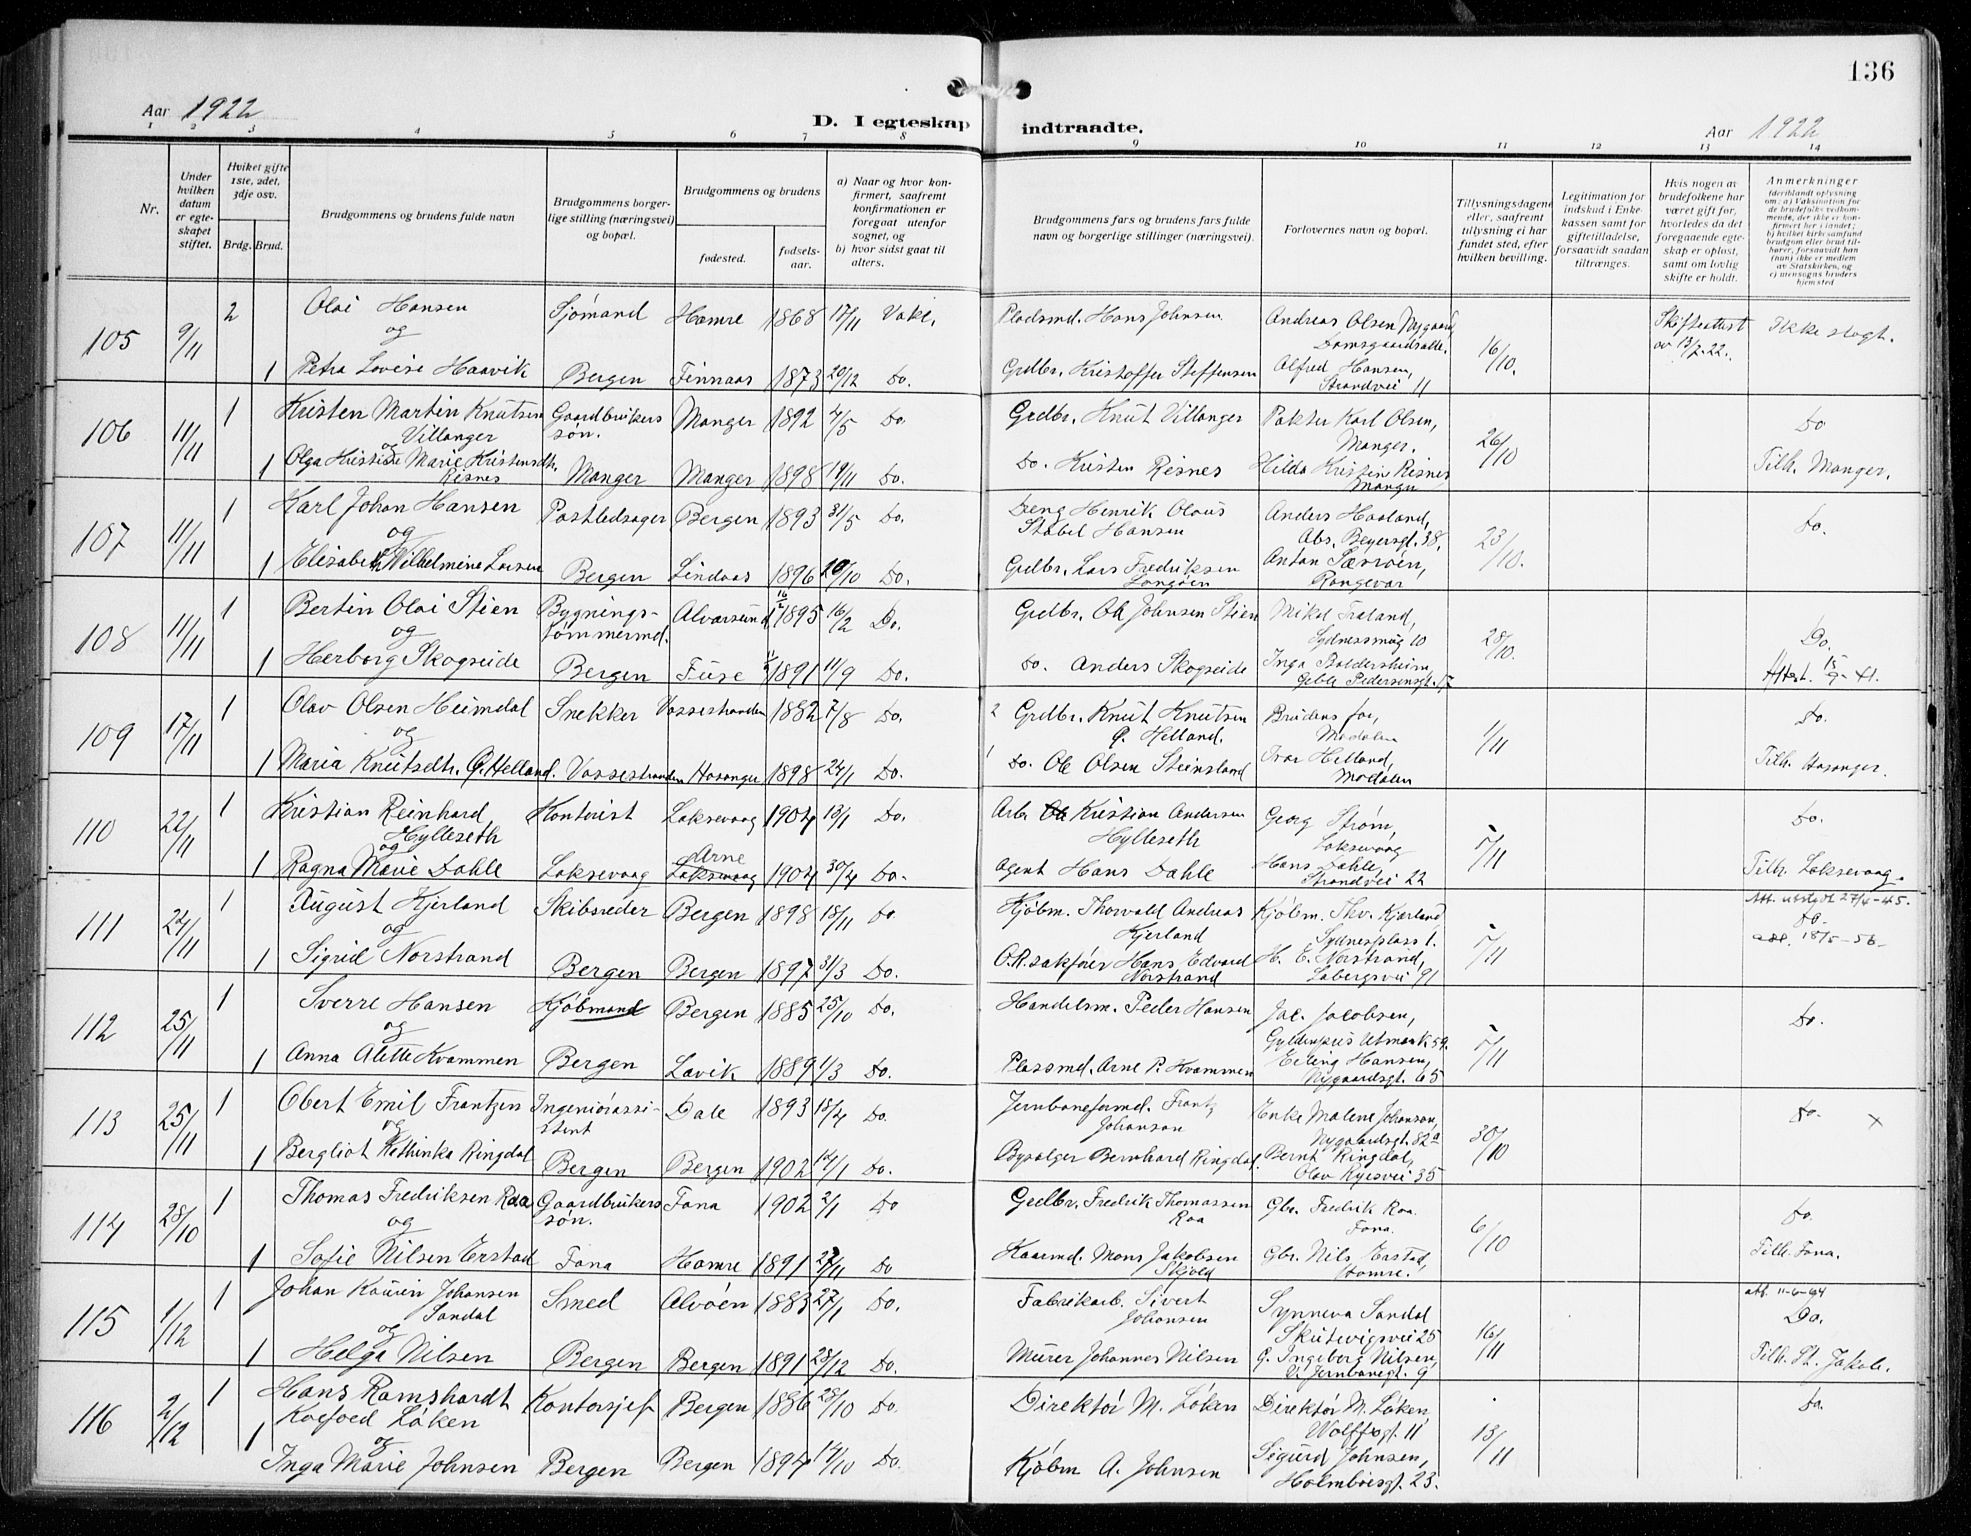 136
Aar 1922
D. I egteskap indtraadte.
Aar 1922
1 2 3 4 5 6 7 8 9 10 11 12 13 14
Nr.
Under hvilken datum er egteskapet stiftet.
Hviket gifte 1ste, 2det, 3dje osv.
Brdg. Brud.
Brudgommens og brudens fulde navn
Brudgommens borgerlige stilling (næringsvei) og bopæl.
Brudgommens og brudens
fødested.
fødselsaar.
a) Naar og hvor konfirmert, saafremt konfirmationen er foregaat utenfor sognet, og
b) hvor sidst gaat til alters.
Brudgommens fars og brudens fars fulde navn og borgerlige stillinger (næringsvei).
Forlovernes navn og bopæl.
Tillysningsdagene eller, saafremt tillysning ei har fundet sted, efter hvilken bevilling.
Legitimation for indskud i Enkekassen samt for giftetilladelse, forsaavidt saadan tiltrænges.
Hvis nogen av brudefolkene har været gift før, hvorledes da det foregaaende egteskap er opløst, samt om lovlig skifte er holdt.
Anmerkninger
(deriblandt oplysning om: a) Vaksination for de brudefolks vedkommende, der ikke er konfirmert her i landet; b) hvilket kirkesamfund brudgom eller brud tilhører, forsaavidt han (hun) ikke er medlem av Statskirken, og c) utensogns bruders hjemsted
105 9/11 2 Olai Hansen Sjømand Hamre 1868 17/11 Vakl. Pladsmd. Hans Johnsen Andreas Olsen Nygaard, Damsgaardsalle. 16/10. Skifteattest av 13/7.22. Ikke slegt.
og
1 Petra Lovise Haavik Bergen Finnaas 1873 20/12 Do. Grdbr. Kristoffer Steffensen Alfred Hansen, Strandvei 11
106 11/11 1 Kristen Martin Knutsen Villanger Gaardbrukers søn. Manger 1892 4/5 Do Grdbr. Knut Villanger Pakter Karl Olsen, Manger. 26/10 Do
og
1 Olga Kristine Marie Kristensdtr. Risnes Manger Manger 1898 19/11 Do. Do. Kristen Risnes Hilda Kristine Risnes Manger Tilh. Manger.
107 11/11 1 Karl Johan Hansen Postledsager Bergen 1893 31/5 Do. Dreng Henrik Olaus Stabel Hansen Anders Haaland, Abs. Beyersgt. 38. 23/10. Do.
og
1 Elisabeth Wilhelmine Larsen Bergen Lindaas 1896 20/10 Do. Grdbr. Lars Fredriksen Langøen Anton Særvøen, Rongevær
108 11/11 1 Bertin Olai Stien Bygningstømmermd. Alversund 16/2 1895 16/2 Do. Grdbr. Ole Johnsen Stien Mikal Træland, Sydnessmug 10 28/10. Do.
og
1 Herborg Skogseide Bergen Fuse 1891 11/9 Do. Do. Anders Skogseide Inga Baldersheim, Geble Pedersensgt. 17 Attest. 15/9-41.
109 17/11 1 Olav Olsen Heimdal Snekker Vossestranden 1882 7/8 Do. 2 Grdbr. Knut Knutsen Ø. Helland. Brudens far, Modalen 1/11 Do.
og
1 Maria Knutsdtr. Ø. Helland. Vossestranden Hosanger 1898 24/1 Do. 1 Do. Ole Olsen Steinsland Ivar Helland, Modalen Tilh. Hosanger.
110 22/11 1 Kristian Reinhard Hylleseth Kontorist Laksevaag 1904 13/1 Do. Arb. Kristian Andersen Hylleseth Georg Strøm, Laksevaag 5/11 Do.
og
1 Ragna Marie Dahle Laksevaag Arne Laksevaag 1904 30/4 Do. Agent Hans Dahle Hans Dahle, Strandvei 22 Tilh. Laksevaag.
111 24/11 1 August Kjerland Skibsreder Bergen 1898 18/11 Do. Kjøbm. Thorvald Andreas Kjerland Kjøbm. Thv. Kjerland Sydnesplass 1. 5/11 Att. utstedt 27/4-45. Do.
og
1 Sigrid Norstrand Bergen Bergen 1897 31/3 Do. O.R.sakfører Hans Edvard Norstrand H. E. Norstrand, Løbergsvei 91 18/5-56-
112 25/11 1 Sverre Hansen Kjøbmand Bergen 1885 25/10 Do. Handelsm. Peder Hansen Jac. Jacobsen, Gyldenpris Utmark 59. 5/11 Do.
og
1 Anna Alette Kvammen Bergen Lavik 1889 1/3 Do. Plassmd. Arne P. Kvammen Erling Hansen, Nygaardsgt. 65
113 25/11 1 Obert Emil Frantzen Ingeniørassistent Dale 1893 18/4 Do. Jernbaneformd. Frantz Johanson Enke Malene Johanson, Nygaardsgt. 82a 30/10 Do. x
og
1 Bergliot Kethinka Ringdal Bergen Bergen 1902 14/1 Do. Byselger Bernhard Ringdal. Bernt Ringdal, Olav Ryesvei 35
114 28/10 1 Thomas Fredriksen Raa Gaardbrukers søn. Fana 1902 2/1 Do Grdbr. Fredrik Thomassen Raa Gbr. Fredrik Raa. Fana. 6/10 Do.
og
1 Sofie Nilsen Erstad Fana Hamre 1891 27/11 Do Kaarmd. Mons Jakobsen Skjold Gbr. Nils Erstad, Hamre. Tilh. Fana.
115 1/12 1 Johan Kaurin Johansen Sandal Smed Alvøen 1883 27/1 Do. Fabrikarb. Sivert Johansen Synneva Sandal Skutevigsvei 25 16/11 att. 11-6-94 Do.
og
1 Helga Nilsen Bergen Bergen 1891 28/12 Do. Murer Johannes Nilsen G. Ingeborg Nilsen, V. Jernbanegt. 9 Tilh. St. Jakob.
116 2/12 1 Hans Ramshardt Koefoed Løken Kontorsjef Bergen 1886 28/10 Do. Direktør M. Løken Direktør M. Løken, Wolffsgt. 11 13/11 Do.
og
1 Inga Marie Johnsen Bergen Bergen 1894 14/10 Do. Kjøbm A. Johnsen Sigurd Johnsen, Holmboesgt. 23.